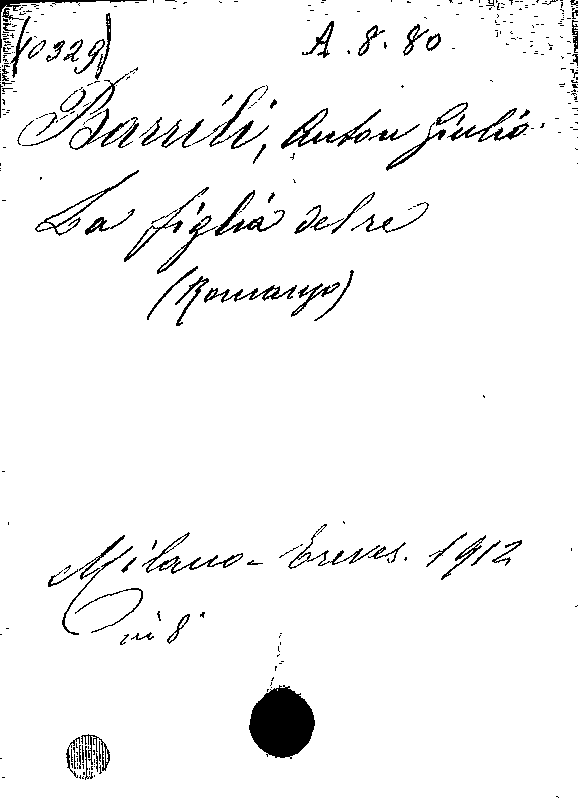 (10329)
A. 8. 80
Barrili, Anton Giulio.
La figlia del re
(Romanzo)
Milano - Treves. 1912
in 8°